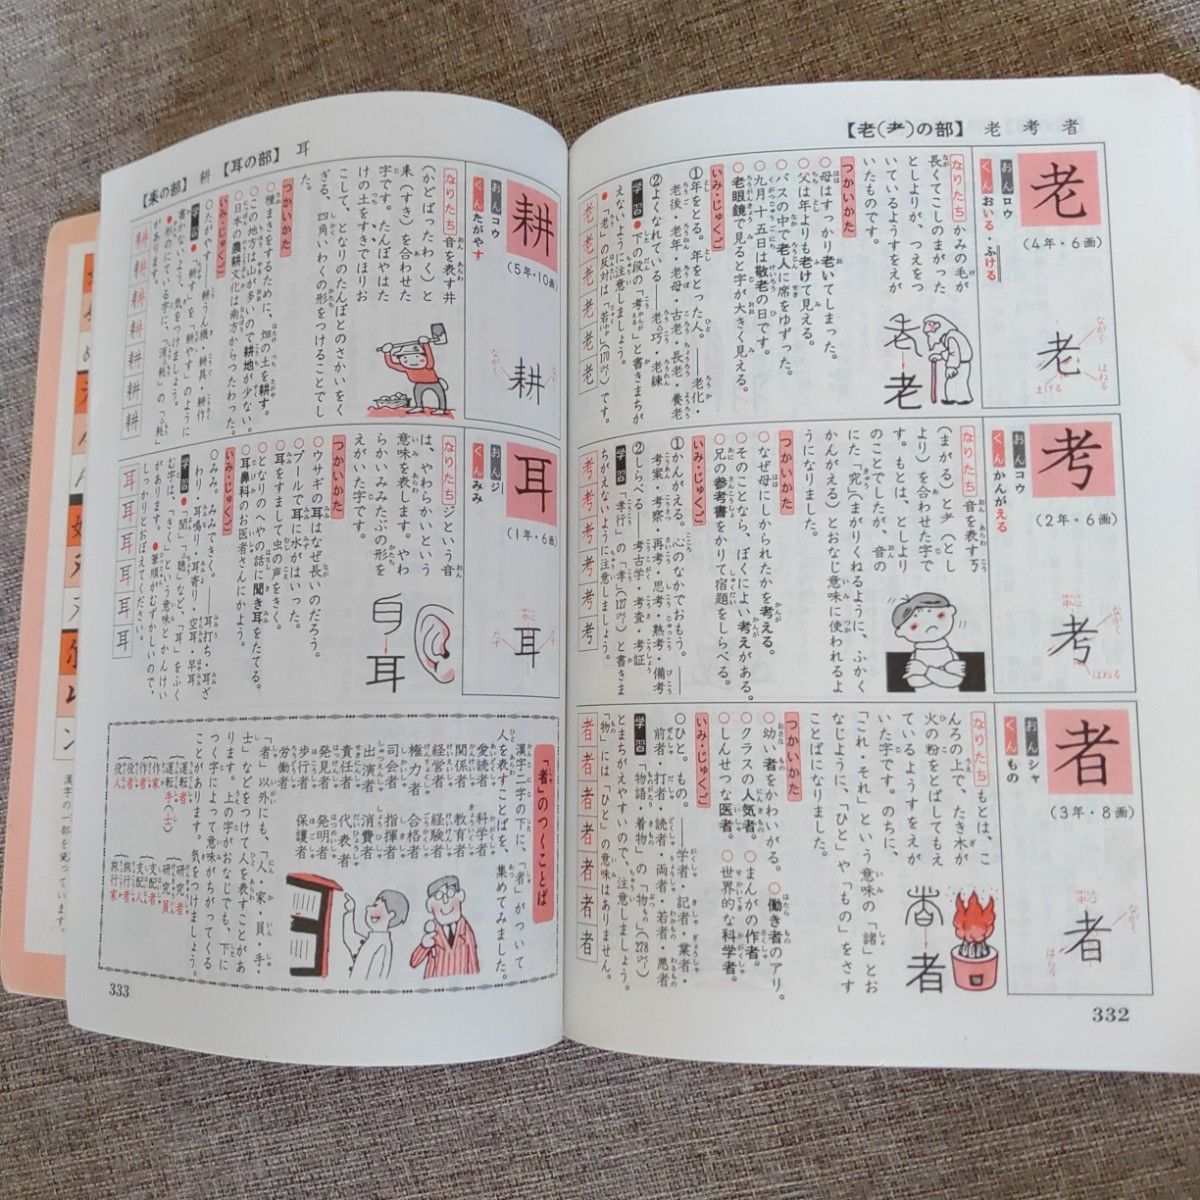 【老(耂)の部】 老 考 者
老
(4年・6画)
おん ロウ
くん おいる・ふける
老
なりたち かみの毛が
長くてこしのまがった
としよりが、つえをつ
いているようすをえが
いたものです。
老
つかいかた
○母はすっかり老いてしまった。
○父は年よりも老けて見える。
○バスの中で老人に席をゆずった。
○九月十五日は敬老の日です。
○老眼鏡で見ると字が大きく見える。
いみ・じゅくご
①年をとる。年をとった人。――老化
老後・老年・老母・古老・長老・養老
②よくなれている――老巧・老練
学習 ●下の段の「考」と書きまちが
えないように注意しましょう。
●「老」の反対は「若」(170ページ)です。
老 老 老 老 老 老
考
(2年・6画)
おん コウ
くん かんがえる
考
なりたち 音を表す丂
(まがる)と耂(とし
より)を合わせた字で
す。もとは、としより
のことでしたが、音の
た「究」(まがりくねるように、ふかく
かんがえる)とおなじ意味に使われるよ
うになりました。
つかいかた
○なぜ母にしかられたかを考える。
○そのことなら、ぼくによい考えがある。
○兄の参考書をかりて宿題をしらべる。
いみ・じゅくご
①かんがえる。心のなかでおもう。――
考案・考察・再考・思考・熟考・備考
②しらべる――考古学・考査・考証
学習 「孝行」の「孝」(127ページ)と書きま
ちがえないように注意しましょう。
考 考 考 考 考 考
者
(3年・8画)
おん シャ
くん もの
者
なりたち もとは、こ
んろの上で、たき木が
火の粉をとばしてもえ
ているようすをえが
いた字です。のちに、
「これ・それ」という意味の「諸」とお
なじように、「ひと」や「もの」をさす
ことばになりました。
者
つかいかた
○幼い者をかわいがる。 ○働き者のアリ。
○クラスの人気者。 ○まんがの作者。
○しんせつな医者。 ○世界的な科学者。
いみ・じゅくご
○ひと。もの。――学者・記者・業者・
前者・打者・読者・両者・若者・悪者
学習 「物語・着物」の「物」(278ページ)
とまちがえやすいので、注意しましょう。
「物」には「ひと」の意味はありません。
者 者 者 者 者 者 者
332
【耒の部】 耕 【耳の部】 耳
耕
(5年・10画)
おん コウ
くん たがやす
耕
なりたち 音を表す井
(かどばったわく)と
耒(すき)を合わせた
字です。たんぼやはた
けの土をすきでほりお
こして、となりのたんぼとのさかいをく
ぎる、四角いわくの形をつけることでし
た。
つかいかた
○種まきをするために、畑の土を耕す。
○この地方は山が多いので耕地が少ない。
○日本の農耕文化は南方からつたわった。
いみ・じゅくご
○たがやす――耕うん機・耕具・耕作
学習 ●「耕す」を「耕やす」のように
書かないよう、気をつけましょう。
●「耕」のにている字に、「消耗」の「耗」
があります。
耕 耕 耕 耕 耕 耕 耕
耳
(1年・6画)
おん ジ
くん みみ
耳
なりたち ジという音
は、やわらかいという
意味を表します。やわ
らかいみみたぶの形を
えがいた字です。
耳
つかいかた
○ウサギの耳はなぜ長いのだろう。
○プールで耳に水がはいった。
○耳をすまして虫の声をきく。
○となりのへやの話に聞き耳をたてる。
○耳鼻科のお医者さんにかよう。
いみ・じゅくご
○みみ。みみできく。――耳打ち・耳ざ
わり・耳鳴り・耳寄り・空耳・早耳
学習 ●「聞」「聴」など、「耳」をふく
む字は、「きく」という意味とかんけい
があります。●筆順がむずかしいので、
しっかりとおぼえてください。
耳 耳 耳 耳 耳 耳
「者」のつくことば
漢字二字の下に、「者」がついて
人を表すことばを、集めてみました。
愛読者 科学者
関係者 教育者
経営者 経験者
権力者 合格者
司会者 指揮者
出演者 消費者
責任者 代表者
発見者 発明者
歩行者 保護者
労働者
「者」以外にも、「人・家・員・手・
士」などをつけて人を表すことがあ
ります。上の字がおなじでも、下に
つく字によって意味がちがってくる
ことがあります。気をつけましょう。
作家 運転者 研究者
作者 運転手(士) 研究員
役者 支配者 旅行者
役人 支配人 旅行家
333
漢字の一部を発っています。